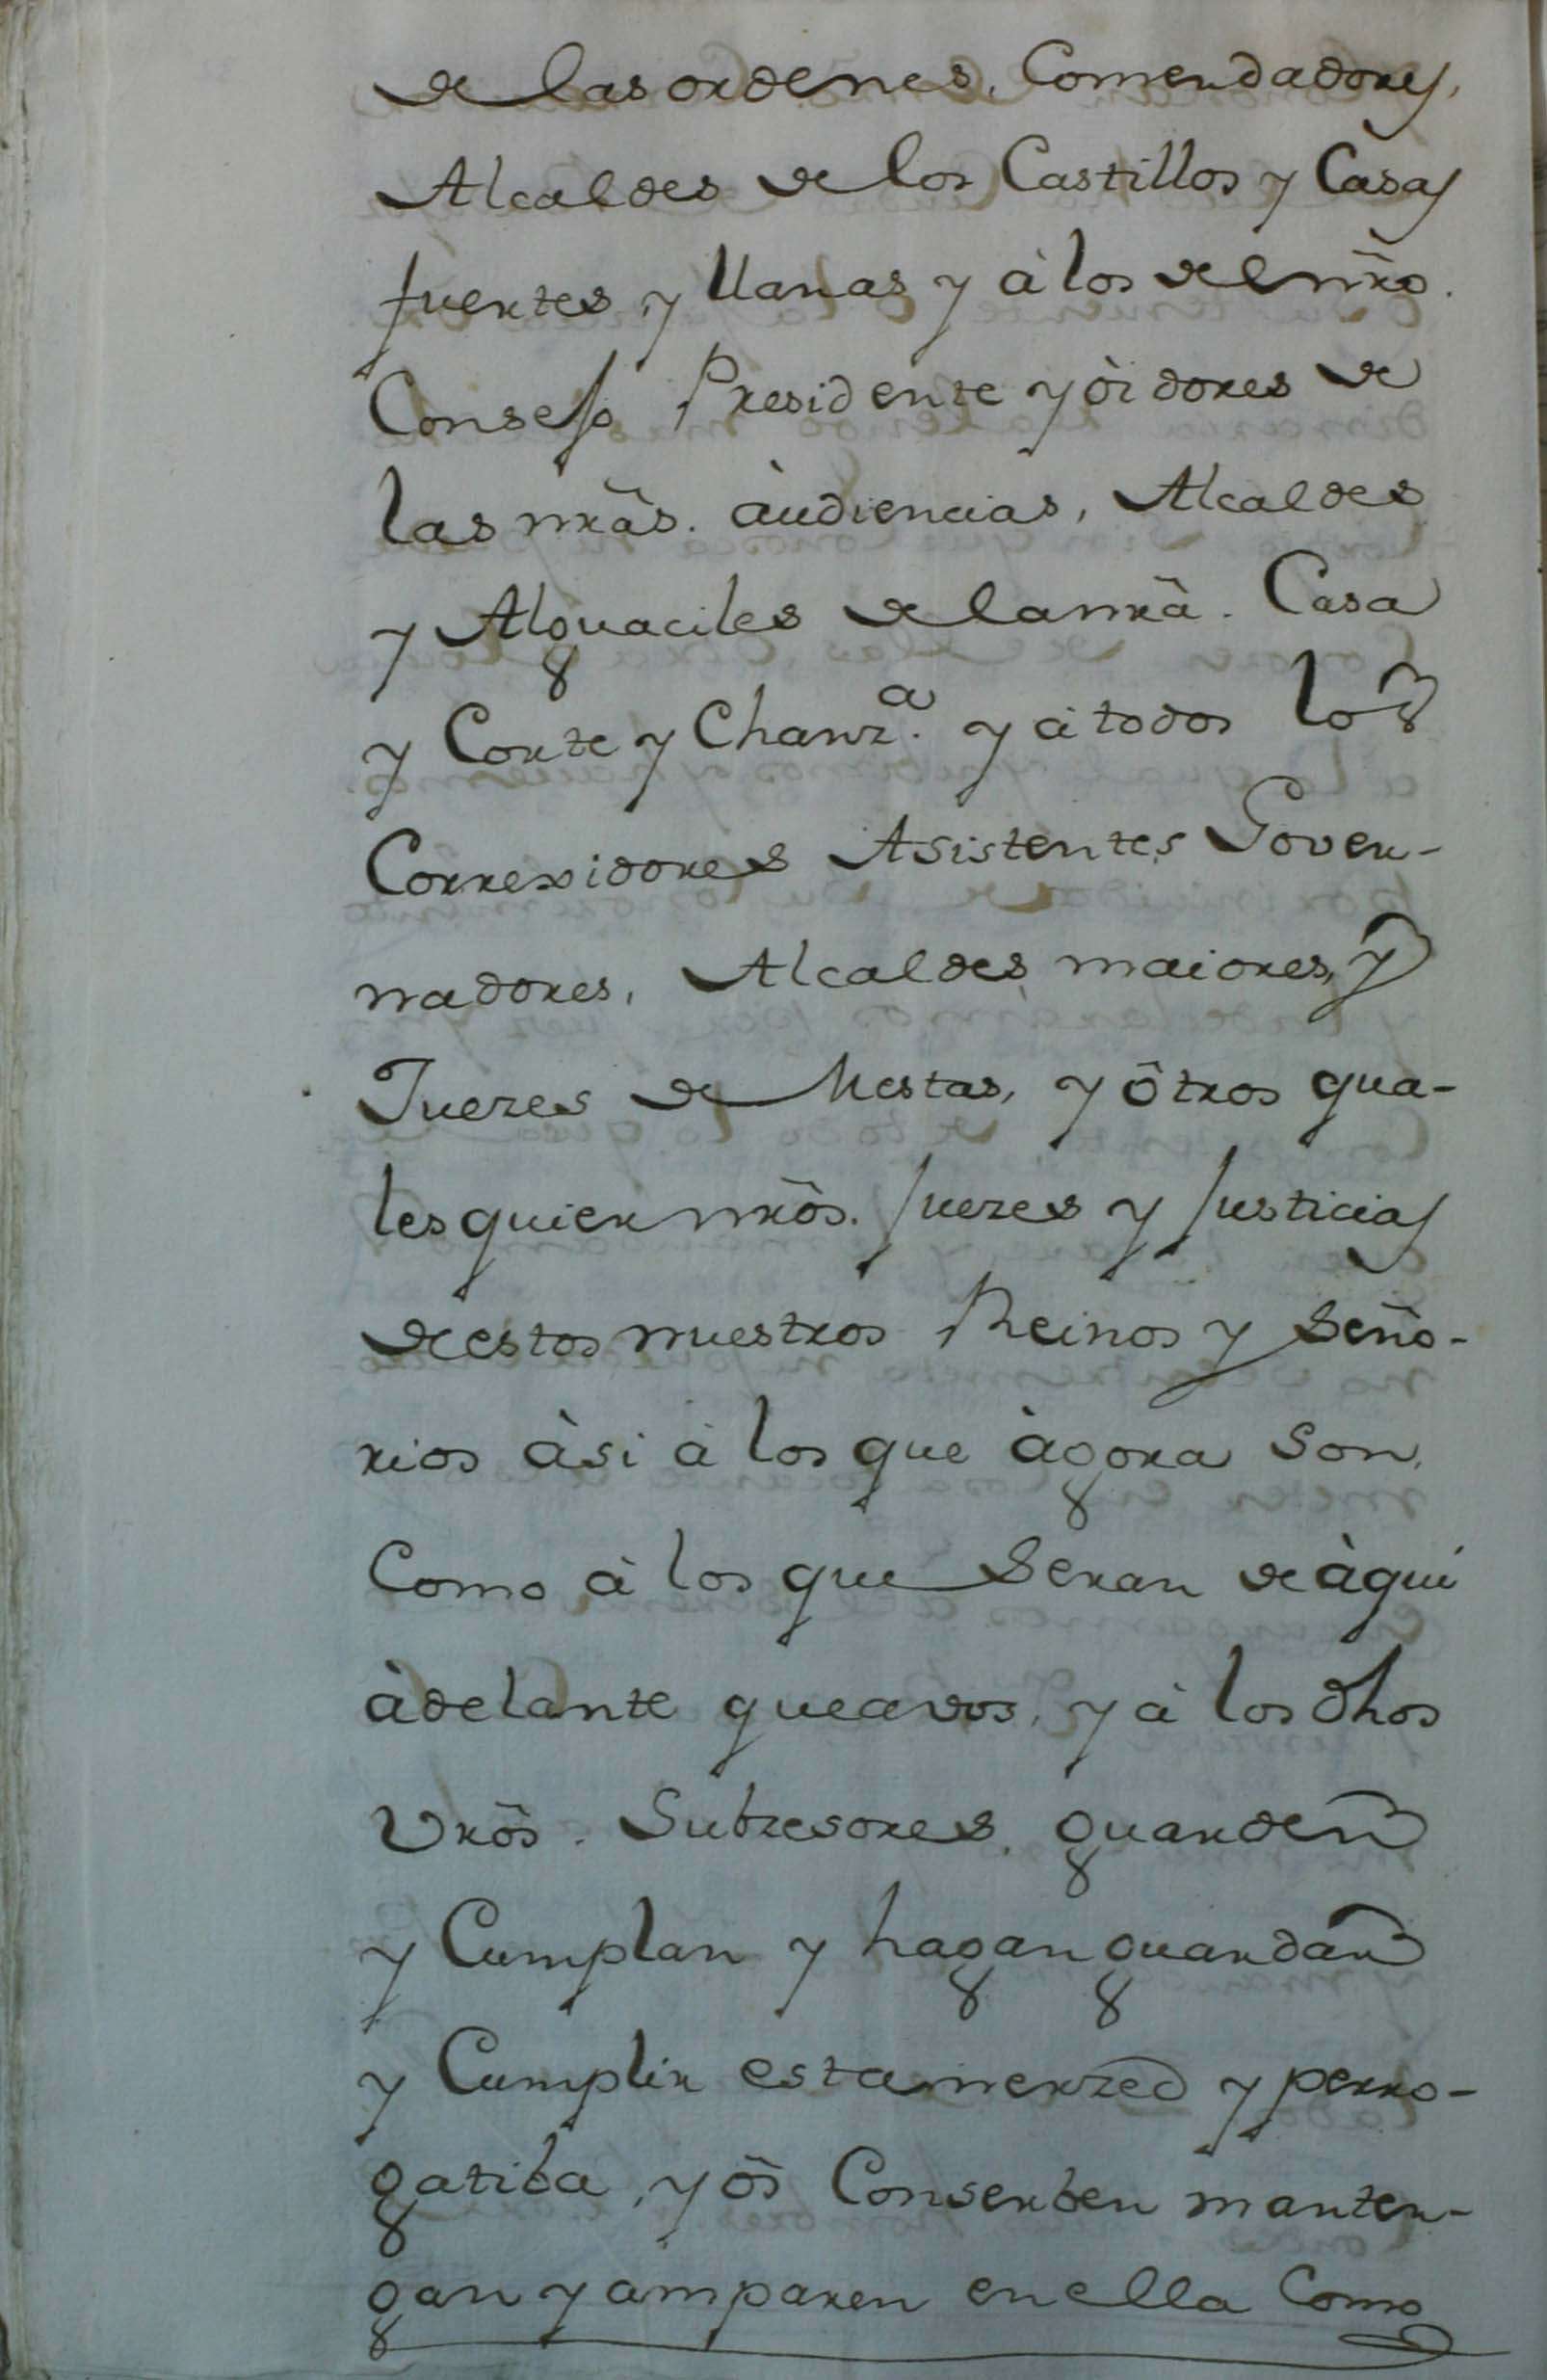 de las ordenes, Comendadores,
Alcaldes de los Castillos y Casas
fuertes, y llanas y à los del nr̃o.
Consejo, Presidente y òidores de
las nr̃as. àudiencias, Alcaldes
y Alguaciles de la nr̃a. Casa
y Corte y Chanz.ª y à todos los
Correxidores Asistentes Gover-
nadores, Alcaldes maiores, y
Juezes de Mestas, y òtros qua-
lesquier nr̃os. Juezes y Justicias
de estos nuestros Reinos y Seño-
rios àsi à los que àgora son,
Como à los que Seran de àqui
àdelante que a vos, y à los dhos
Vr̃os. Subzesores, guarden
y Cumplan y hagan guardar
y Cumplir esta merzed y perro-
gatiba, y òs Conserben manten-
gan y amparen en ella Como